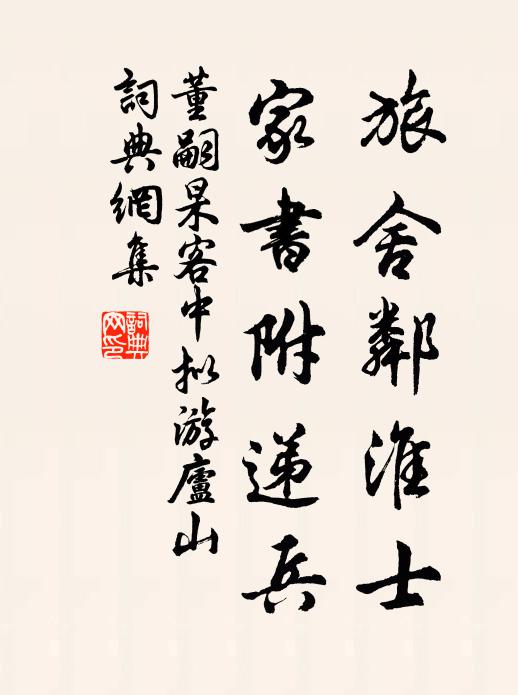 旅舍鄰淮士
家書附递兵
董嗣杲客中拟游廬山
詞典網集
詞典
网印